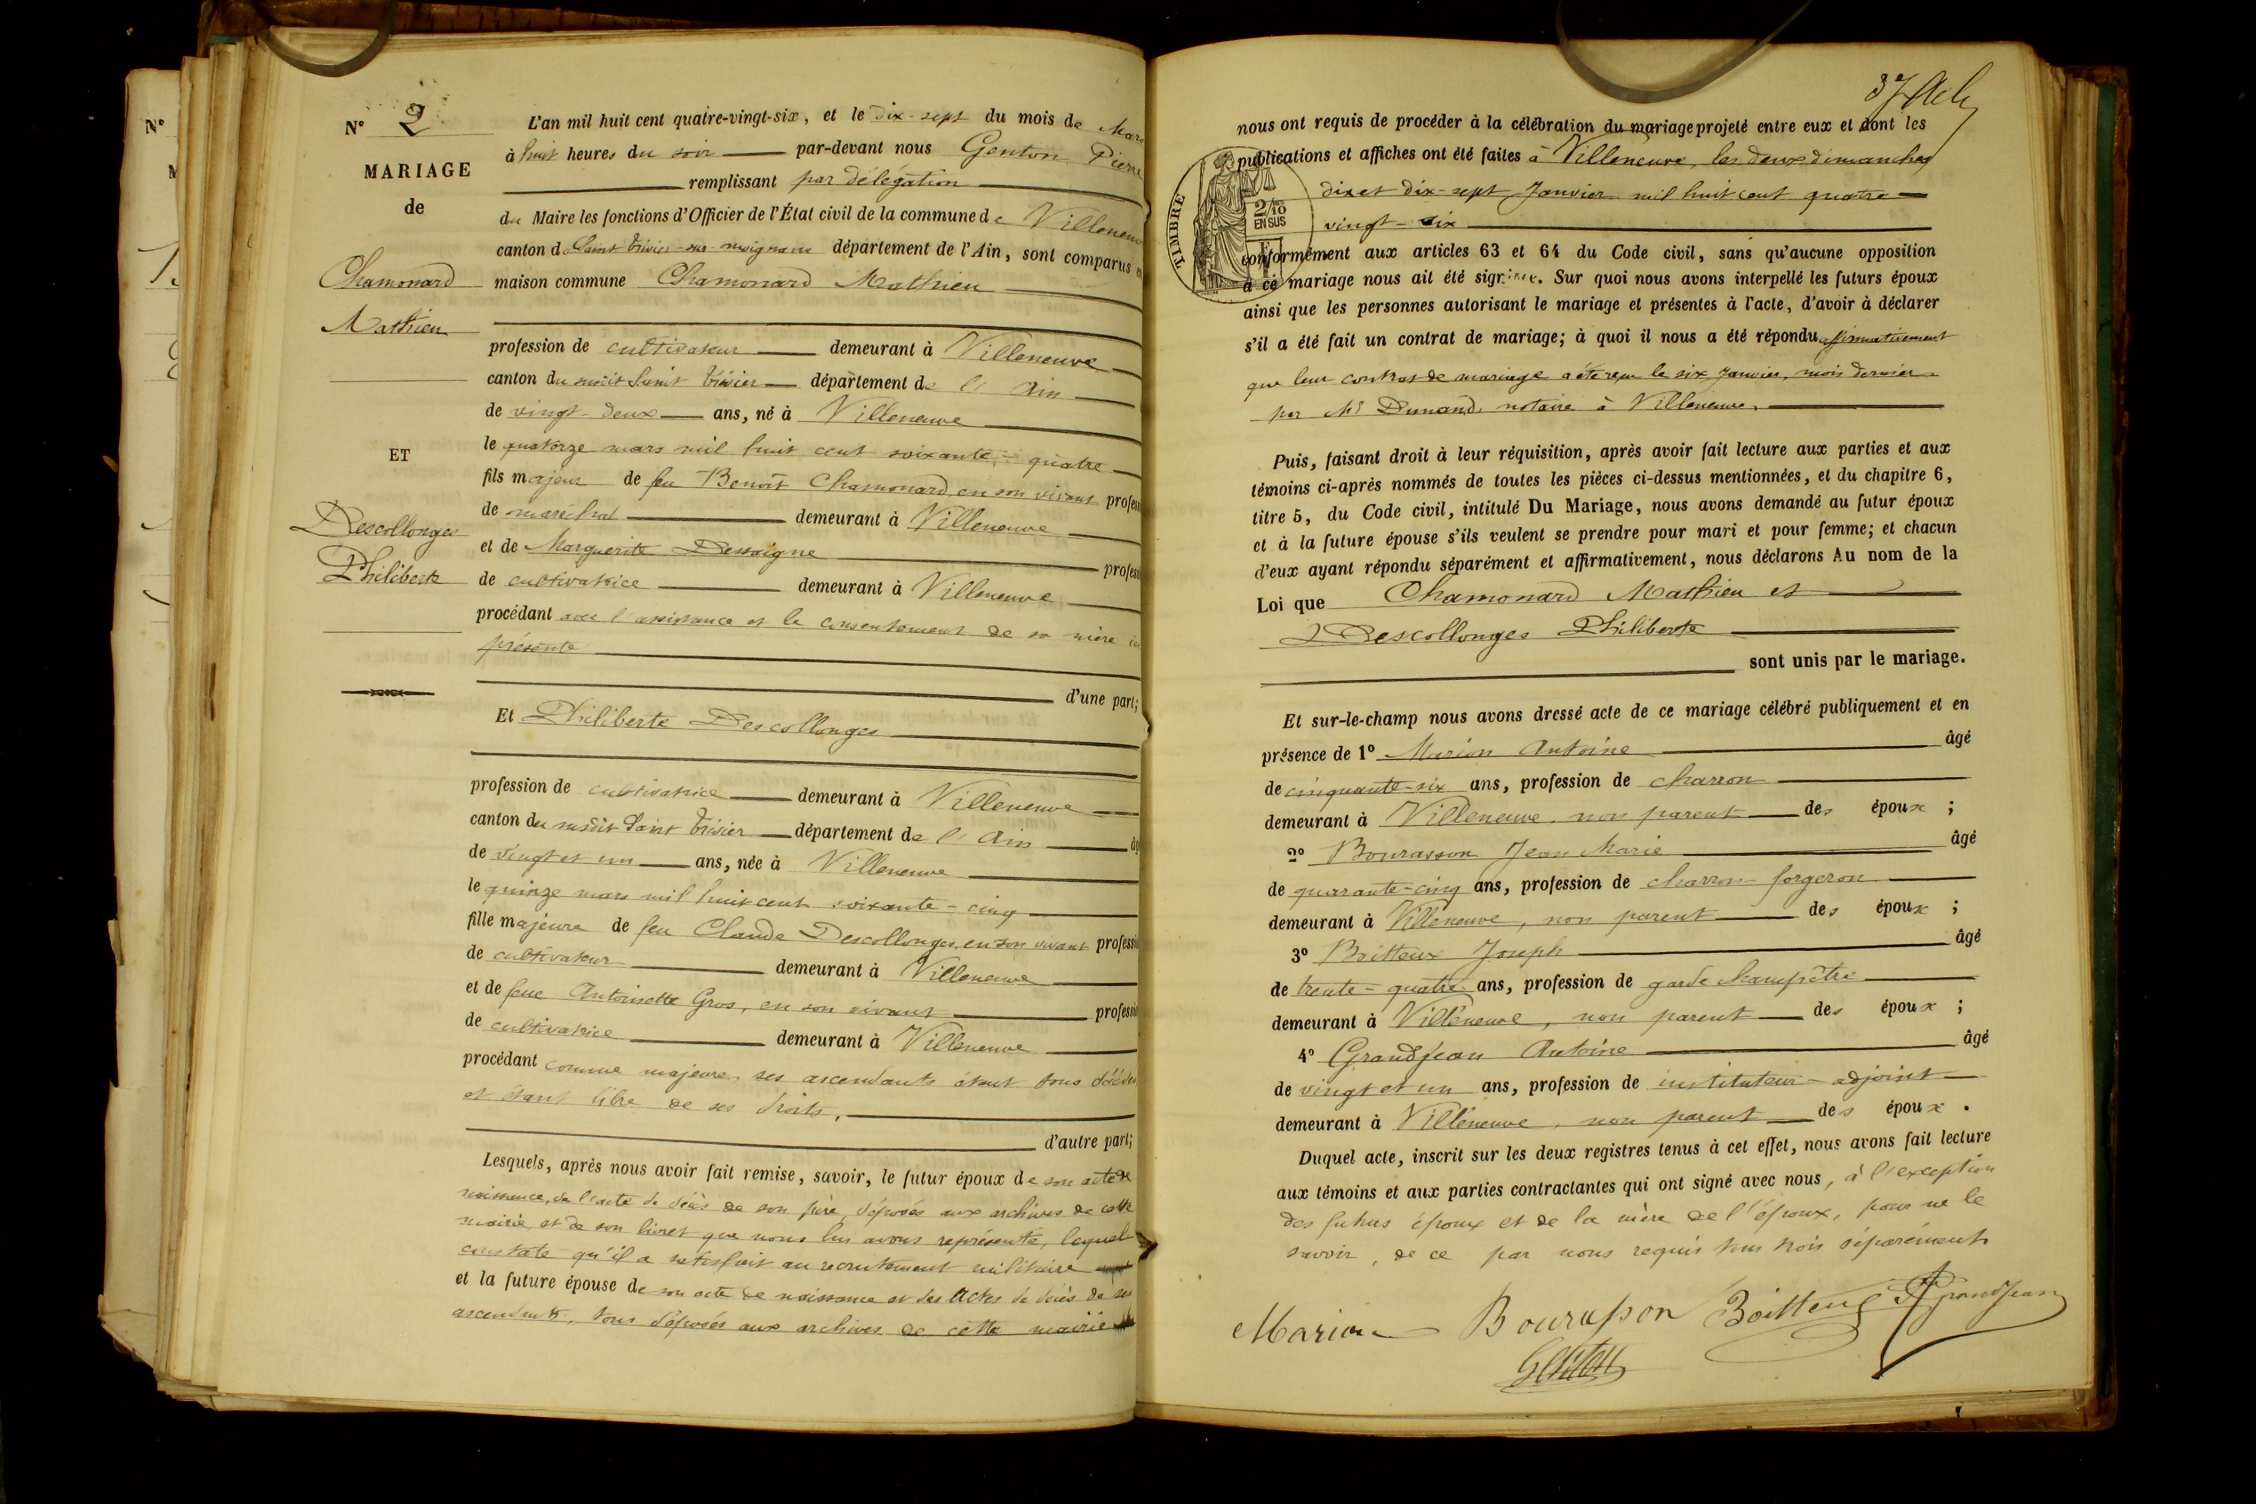 N°
N° 2
MARIAGE
de
Chamonard
Mathieu
ET
Descollonges
Philiberte
L'an mil huit cent quatre-vingt-six, et le dix-sept du mois de Mars
à huit heures du soir par-devant nous Genton Pierre
remplissant par délégation
du Maire les fonctions d'Officier de l'État civil de la commune de Villeneuve
canton de Saint Trivier-sur-moignans département de l'Ain, sont comparus en
maison commune Chamonard Mathieu
profession de cultivateur demeurant à Villeneuve
canton du susdit Saint Trivier département de l'Ain
de vingt-deux ans, né à Villeneuve
le quatorze mars mil huit cent soixante-quatre
fils majeur de feu Benoît Chamonard, en son vivant profess
de maréchal demeurant à Villeneuve
et de Marguerite Dessaigne profess
de cultivatrice demeurant à Villeneuve
procédant avec l'assistance et le consentement de sa mère ici
présente
d'une part;
Et Philiberte Descollonges
profession de cultivatrice demeurant à Villeneuve
canton du susdit Saint Trivier département de l'Ain âg
de vingt et un ans, née à Villeneuve
le quinze mars mil huit cent soixante-cinq
fille majeure de feu Claude Descollonges, en son vivant professi
de cultivateur demeurant à Villeneuve
et de feue Antoinette Gros, en son vivant professi
de cultivatrice demeurant à Villeneuve
procédant comme majeure, ses ascendants étant tous décédés
et étant libre de ses droits,
d'autre part;
Lesquels, après nous avoir fait remise, savoir, le futur époux de son acte de
naissance, de l'acte de décès de son père, déposés aux archives de cette
mairie, et de son livret que nous lui avons représenté, lequel
constate qu'il a satisfait au recrutement militaire
et la future épouse de son acte de naissance et des actes de décès de ses
ascendants, tous déposés aux archives de cette mairie
37
nous ont requis de procéder à la célébration du mariage projeté entre eux et dont les
publications et affiches ont été faites à Villeneuve, les deux dimanches
dix et dix-sept Janvier mil huit cent quatre
vingt-six
TIMBRE
2/10
EN SUS
conformément aux articles 63 et 64 du Code civil, sans qu'aucune opposition
à ce mariage nous ait été signifiée. Sur quoi nous avons interpellé les futurs époux
ainsi que les personnes autorisant le mariage et présentes à l'acte, d'avoir à déclarer
s'il a été fait un contrat de mariage; à quoi il nous a été répondu affirmativement
que leur contrat de mariage a été reçu le six Janvier, mois dernier
par Me Dunand, notaire à Villeneuve.
Puis, faisant droit à leur réquisition, après avoir fait lecture aux parties et aux
témoins ci-après nommés de toutes les pièces ci-dessus mentionnées, et du chapitre 6,
titre 5, du Code civil, intitulé Du Mariage, nous avons demandé au futur époux
et à la future épouse s'ils veulent se prendre pour mari et pour femme; et chacun
d'eux ayant répondu séparément et affirmativement, nous déclarons Au nom de la
Loi que Chamonard Mathieu et
Descollonges Philiberte
sont unis par le mariage.
Et sur-le-champ nous avons dressé acte de ce mariage célébré publiquement et en
présence de 1° Marion Antoine âgé
de cinquante-six ans, profession de charron
demeurant à Villeneuve, non parent des époux ;
2° Bourasson Jean Marie âgé
de quarante-cinq ans, profession de charron-forgeron
demeurant à Villeneuve, non parent des époux ;
3° Boitteux Joseph âgé
de trente-quatre ans, profession de garde champêtre
demeurant à Villeneuve, non parent des époux ;
4° Grandjean Antoine âgé
de vingt et un ans, profession de instituteur-adjoint
demeurant à Villeneuve, non parent des époux.
Duquel acte, inscrit sur les deux registres tenus à cet effet, nous avons fait lecture
aux témoins et aux parties contractantes qui ont signé avec nous, à l'exception
des futurs époux et de la mère de l'époux, pour ne le
savoir, de ce par nous requis tous trois séparément
Marion Bourasson Boitteux A Grandjean
Genton